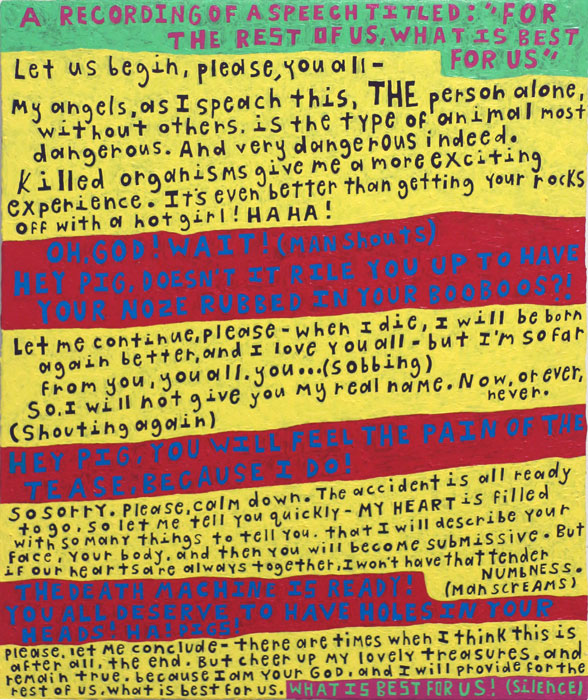 A RECORDING OF A SPEECH TITLED: "FOR
THE REST OF US, WHAT IS BEST
FOR US"
Let us begin, please, you all -
My angels, as I speach this, THE person alone,
without others. is the type of animal most
dangerous. And very dangerous indeed.
Killed organisms give me a more exciting
experience. It's even better than getting your rocks
off with a hot girl! HAHA!
OH, GOD! WAIT! (MAN Shouts)
HEY PIG, DOESN'T IT RILE YOU UP TO HAVE
YOUR NOZE RUBBED IN YOUR BOOBOOS?!
Let me continue, please - when I die, I will be born
again better, and I love you all - but I'm so far
from you, you all. you... (Sobbing)
So, I will not give you my real name. Now, or ever,
never.
(Shouting again)
HEY PIG, YOU WILL FEEL THE PAIN OF THE
TEASE, BECAUSE I DO!
So sorry. Please, calm down. The accident is all ready
to go, so let me tell you quickly - MY HEART is filled
with so many things to tell you. that I will describe your
face, your body, and then you will become submissive. But
if our hearts are always together, I won't have that tender
NUMBNESS.
(Man SCREAMS)
THE DEATH MACHINE IS READY!
YOU ALL DESERVE TO HAVE HOLES IN YOUR
HEADS! HA! PIGS!
Please, let me conclude - there are times when I think this is
after all, the end. But cheer up my lovely treasures. and
remain true. because I am your God. and I will provide for the
rest of us. what is best for us. WHAT IS BEST FOR US! (Silence)